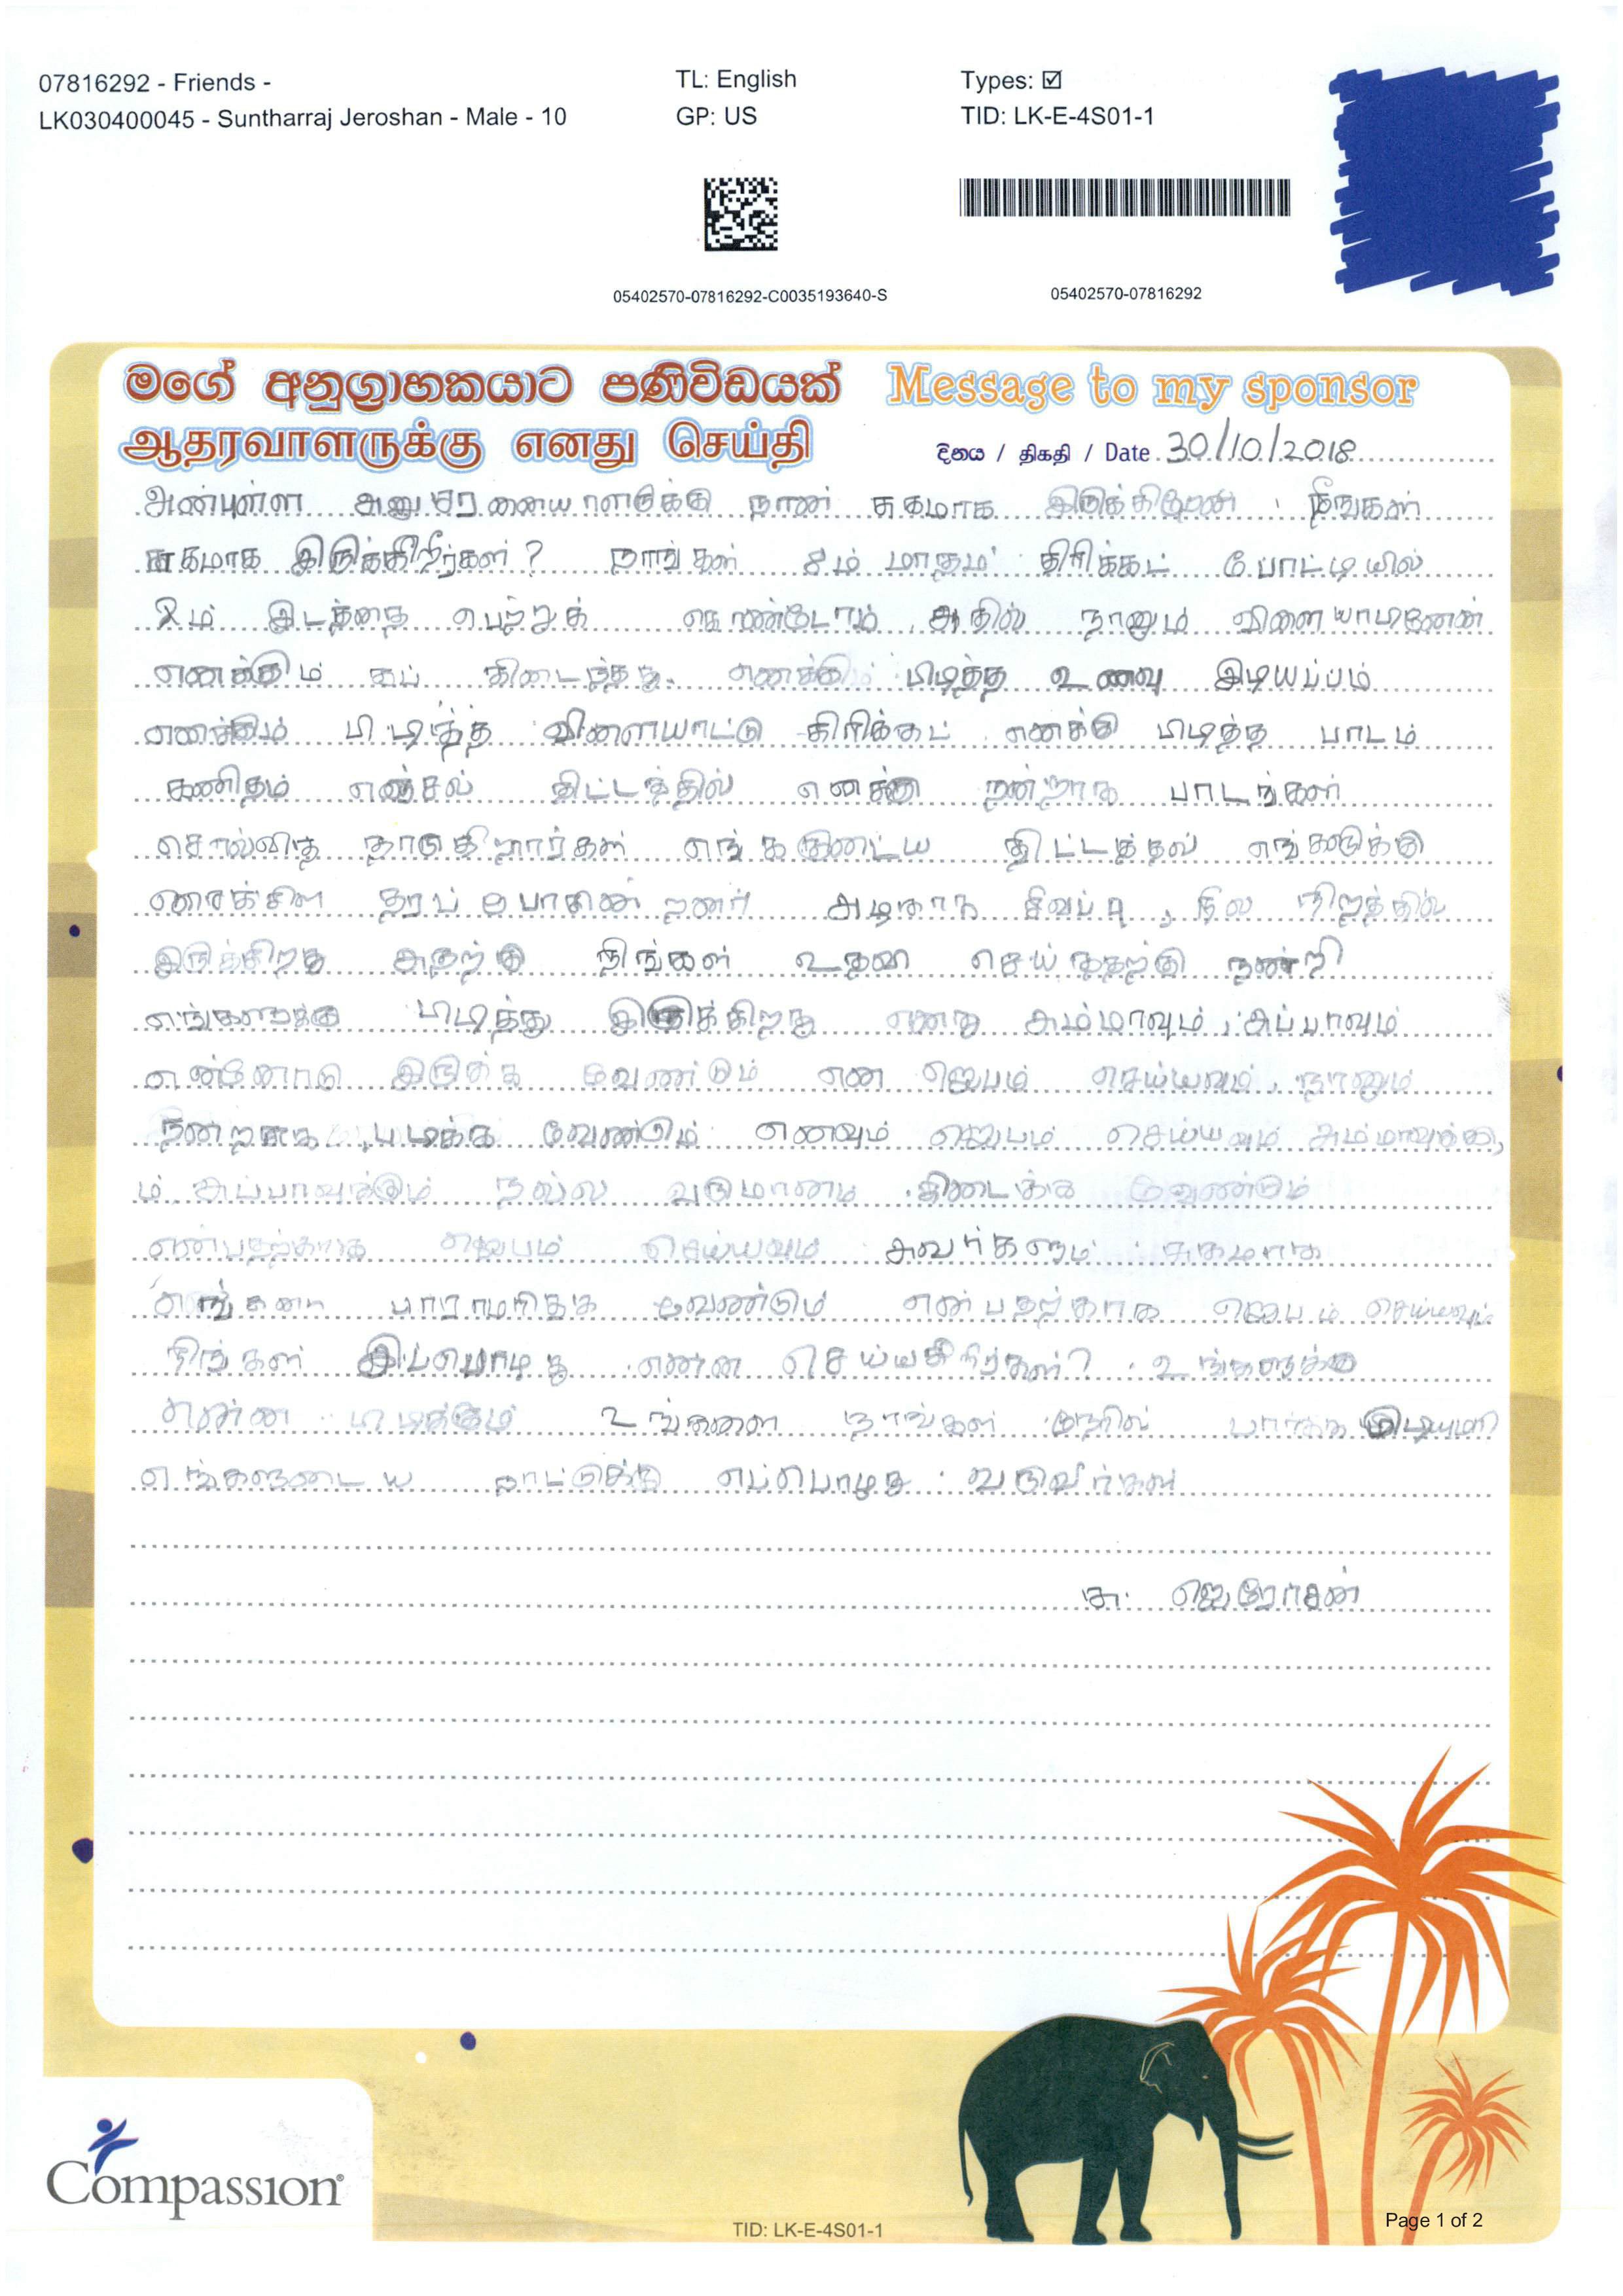 07816292 - Friends -
LK030400045 - Suntharraj Jeroshan - Male - 10
TL: English
GP: US
Types: ☑
TID: LK-E-4S01-1
05402570-07816292-C0035193640-S
05402570-07816292
මගේ අනුග්‍රාහකයාට පණිවිඩයක් Message to my sponsor
ஆதரவாளருக்கு எனது செய்தி
දිනය / திகதி / Date 30/10/2018
அன்புள்ள நான் சுகமாக இருக்கிறேன் . நீங்கள்
சுகமாக இருக்கிறீர்கள் ? நாங்கள் 8ம் மாதம் கிரிக்கட் போட்டியில்
2ம் இடத்தை பெற்றுக் கொண்டோம் . அதில் நானும்
எனக்கும் கப் கிடைத்தது. பிடித்த உணவு இடியப்பம்
பிடித்த விளையாட்டு கிரிக்கட் . எனக்கு பிடித்த பாடம்
கணிதம் திட்டத்தில் எனக்கு நன்றாக பாடங்கள்
சிவப்பு , நில நிறத்தில்
இருக்கிறது அதற்கு நிங்கள் உதவி செய்ததற்கு நன்றி
எங்களுக்கு பிடித்து இருக்கிறது எனது அம்மாவும் , அப்பாவும்
என்னோடு இருக்க வேண்டும் என ஜெபம் செய்யவும் . நானும்
படிக்க வேண்டும் எனவும் ஜெபம் செய்யவும்
ம் அப்பாவுக்கும் நல்ல வருமானம் கிடைக்க வேண்டும்
என்பதற்காக ஜெபம் செய்யவும் அவர்களும் சுகமாக
வேண்டும் என்பதற்காக ஜெபம் செய்யவும்
நிங்கள் என்ன உங்களுக்கு
என்ன பிடிக்கும் உங்களை நாங்கள் நேரில் பார்க்க
எங்களுடைய நாட்டுக்கு எப்பொழுது வருவீர்கள்
சு. ஜெரோசன்
Compassion®
TID: LK-E-4S01-1
Page 1 of 2